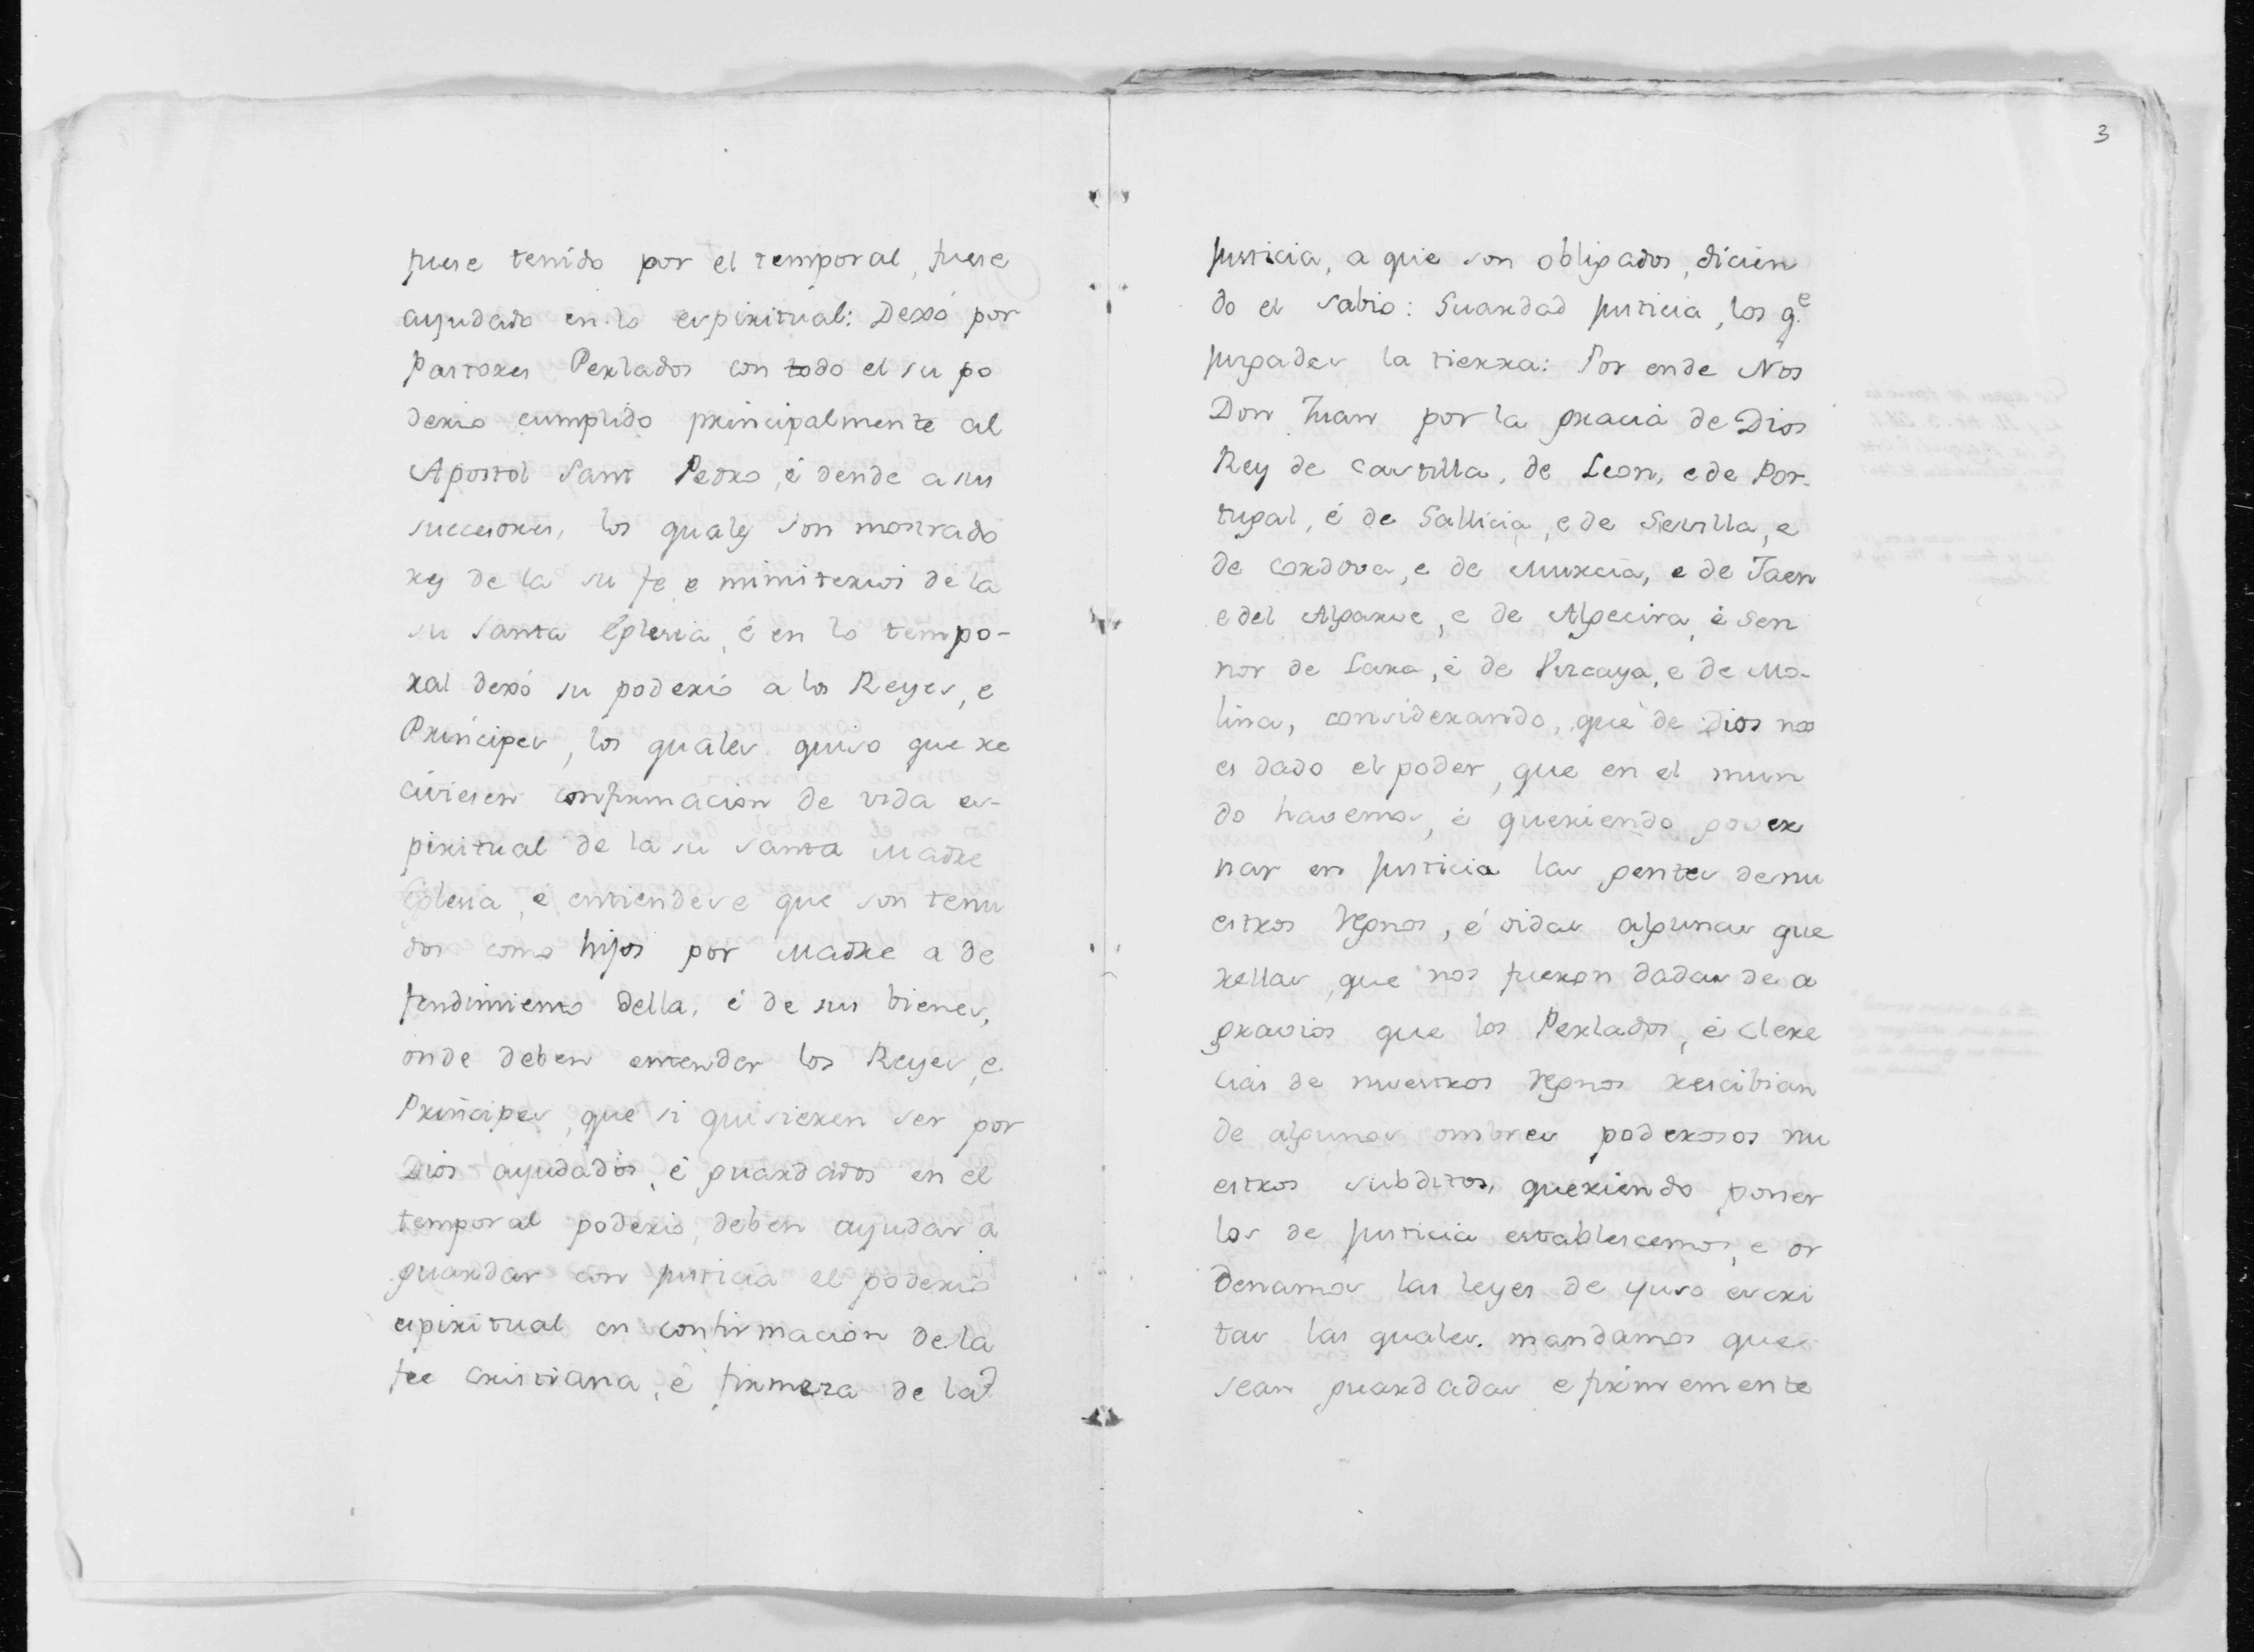 fuese tenido por el temporal, fuese
ayudado en lo espiritual: Dexó por
Pastores Perlados con todo el su po
derio cumplido principalmente al
Apostol Sant Pedro, é dende a sus
successores, los quales son mostrado
res de la su fe e ministerios de la
su Santa Eglesia, é en lo tempo-
ral dexó su poderio a los Reyes, e
Principes, los quales quiso que re
civiesen confirmacion de vida es-
piritual de la su santa Madre
Eglesia, é entiendese que son tenu
dos como hijos por Madre a de
fendimiento della, é de sus bienes,
onde deben entender los Reyes, e
Principes, que si quisieren ser por
Dios ayudados, é guardados en el
temporal poderio, deben ayudar a
guardar con justicia el poderio
espiritual en confirmacion de la
fee cristiana, é firmeza de la
3
justicia, a que son obligados, dicien
do el sabio: Guardad justicia, los q.e
jusgades la tierra: Por ende Nos
Don Juan por la gracia de Dios
Rey de Castilla, de Leon, e de Por-
tugal, é de Gallicia, e de Sevilla, e
de Cordova, e de Murcia, e de Jaen
e del Algarve, e de Algecira, é Sen
nor de Lara, é de Viscaya, e de Mo-
lina, considerando, que de Dios nos
es dado el poder, que en el mun
do havemos, é queriendo gover
nar en justicia las gentes de nu
estros Regnos, é oidas algunas que
rellas, que nos fueron dadas de a
gravios que los Perlados, é Clere
cias de nuestros Regnos rescibian
de algunos ombres poderosos nu
estros subditos, queriendo poner
los de justicia establescemos, e or
denamos las leyes de yuso escri
tas las quales mandamos que
sean guardadas e firmemente